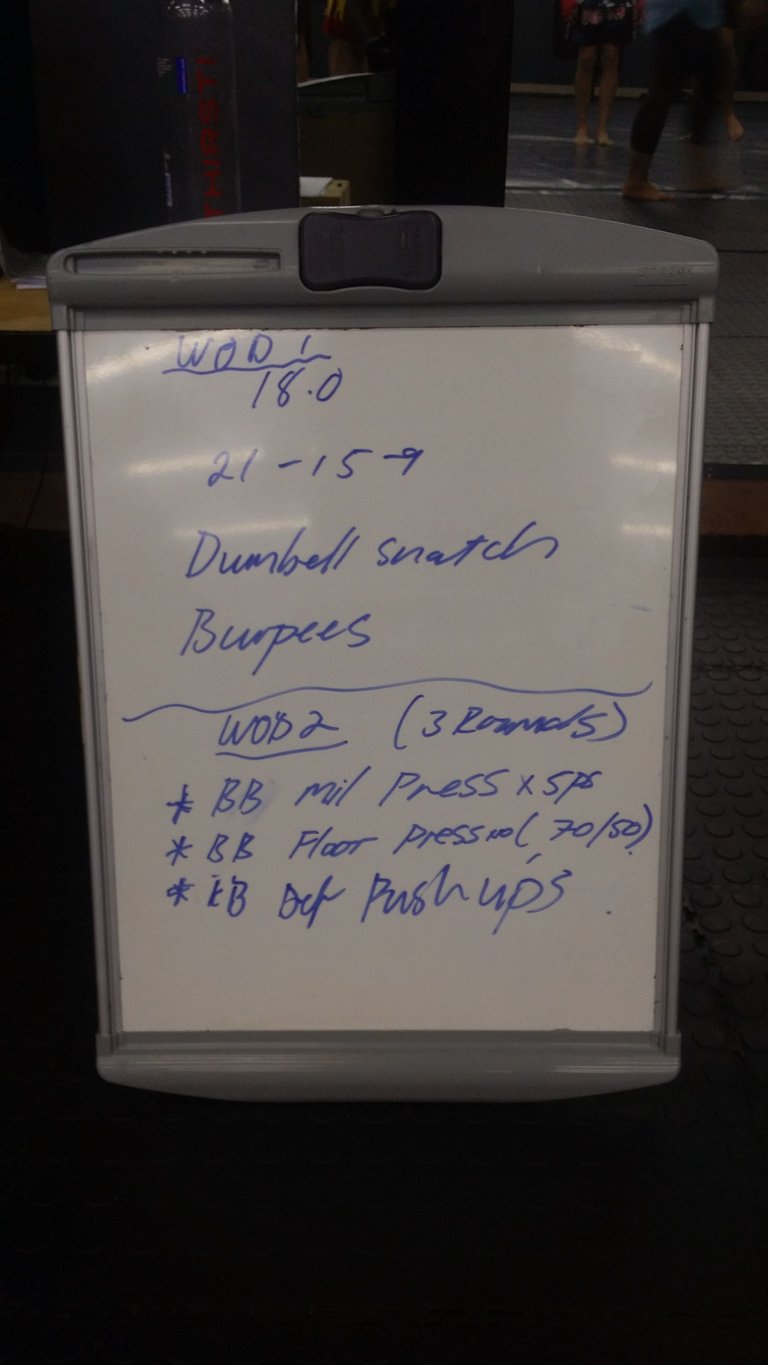 THIRSTI
WOD 1
18.0
21-15-9
Dumbell snatch
Burpees
WOD2 (3 Rounds)
* BB mil Press x 5ps
* BB Floor Press x10 (70/50)
* KB Def Push ups